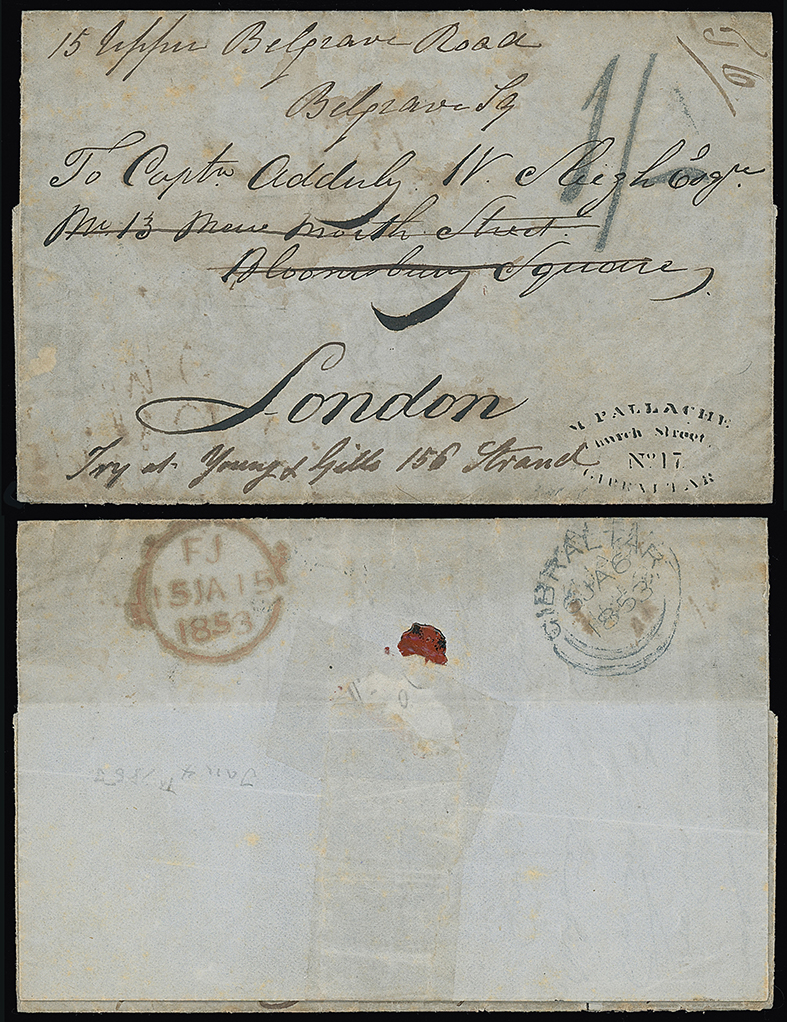 15 Upper Belgrave Road
Belgrave Sq
1/-
To Captn Adderly W. Sleigh Esqre
No 13 New North Street
Bloomsbury Square
London
Try at Young & Gills 156 Strand
M. PALLACHE
Church Street,
No 17
GIBRALTAR
FJ
15 JA 15
1853
GIBRALTAR
JA 6
1853
Jan 4th 1853